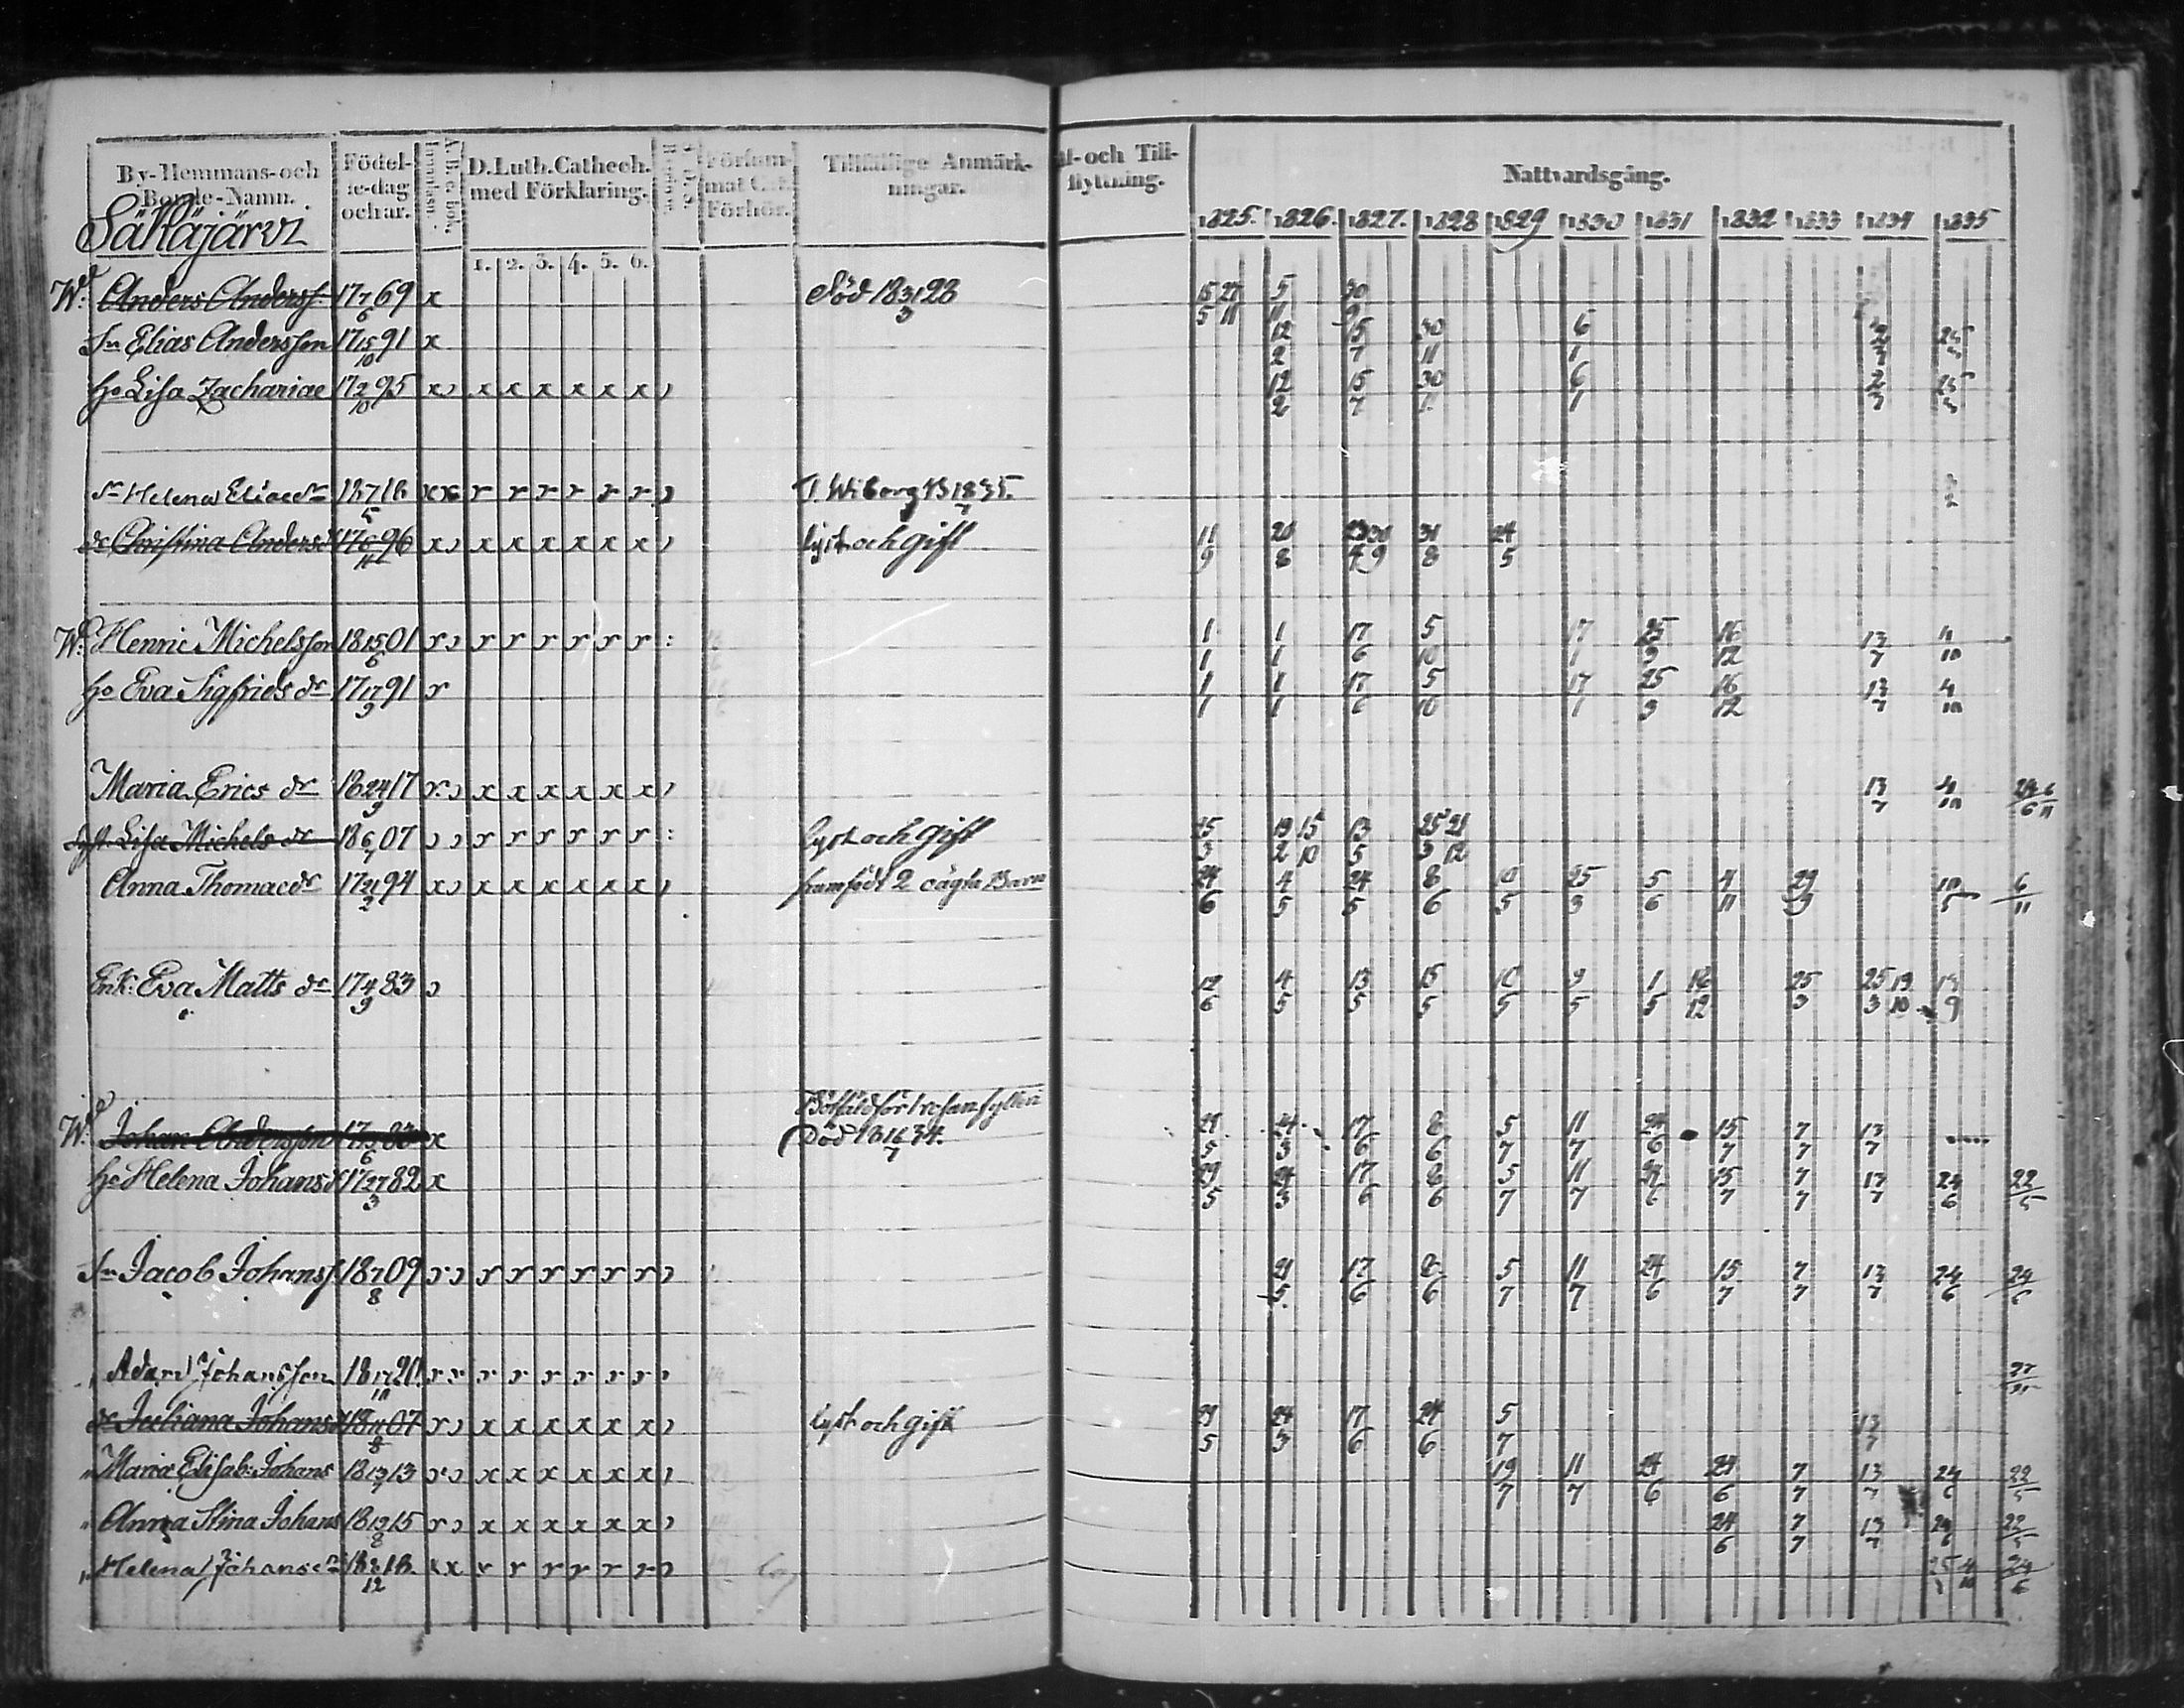 By-Hemmans-och Bonde-Namn. Födel-se-dag och år. D. Luth. Cathech. med Förklaring. Försum-mat Förhör. Tillfällige Anmärk-ningar. Af- och Till-flyttning. Nattvardsgång.
Säkäjärvi
1. 2. 3. 4. 5. 6. 1825. 1826. 1827. 1828 1829 1830 1831 1832 1833 1834 1835
Wd: Anders Anderss: 17 7/6 69 x död 18 31/3 28 15/5 27/11 5/11 30/9
Sn Elias Andersson 17 15/10 91 x 12/2 15/7 30/11 6/1 2/7 25/3
Ho Lisa Zachariae 17 2/10 95 x x x x x x x 12/2 15/7 30/11 6/1 2/7 25/3
Helena Eliaedr 18 7/5 18 x x r r r r r r T. Wiborg 1835.
dr Christina Andersd 17 6/11 96 x x x x x x x lyst och gift 11/9 20/8 30/9 31/8 24/5
Wd: Henric Michelsson 18 15/6 01 r r r r r r r 1/1 1/1 17/6 5/10 17/1 25/9 16/12 13/7 4/10
Ho Eva Sigfrids dr 17 17/9 91 r 1/1 1/1 17/6 5/10 17/1 25/9 16/12 13/7 4/10
Maria Erics dr 18 24/9 17 r x x x x x x 13/7 4/10 24/6 6/11
Syst. Lisa Michels dr 18 6/7 07 r r r r r r lyst och gift 25/3 19/2 15/10 13/5 25/3 21/12
Anna Thomaedr 17 21/2 94 x x x x x x x framfödt 2 oägta Barn 24/6 4/5 24/5 8/6 10/5 25/3 5/6 4/11 29/9 10/5 6/11
Enk: Eva Matts dr 17 4/9 83 12/6 4/5 13/5 15/5 10/5 9/5 1/5 16/12 25/3 25/3 19/10 13/9
Wd: Johan Andersson 83 x Död 18 16/7 34. 29/5 24/3 17/6 8/6 5/7 11/7 24/6 15/7 7/7 13/7
Ho Helena Johansd 17 27/3 82 x 29/5 24/3 17/6 8/6 5/7 11/7 24/6 15/7 7/7 13/7 24/6 22/5
Sn Jacob Johanss 18 7/8 09 r r r r r r r 21/5 17/6 8/6 5/7 11/7 24/6 15/7 7/7 13/7 24/6 24/6
Adam Johansson 18 17/10 20 r r r r r r r r
dr Juliana Johansd 18 11/8 07 r x x x x x x lyst och gift 29/5 24/3 17/6 24/6 5/7 13/7
Maria Elisab: Johans 18 13/7 13 r x x x x x x 19/7 11/7 24/6 24/6 7/7 13/7 24/6 22/5
Anna Stina Johans 18 12/8 15 r x x x x x x 24/6 7/7 13/7 24/6 22/5
Helena Johans 12 18 x x r r r r r r 24/6